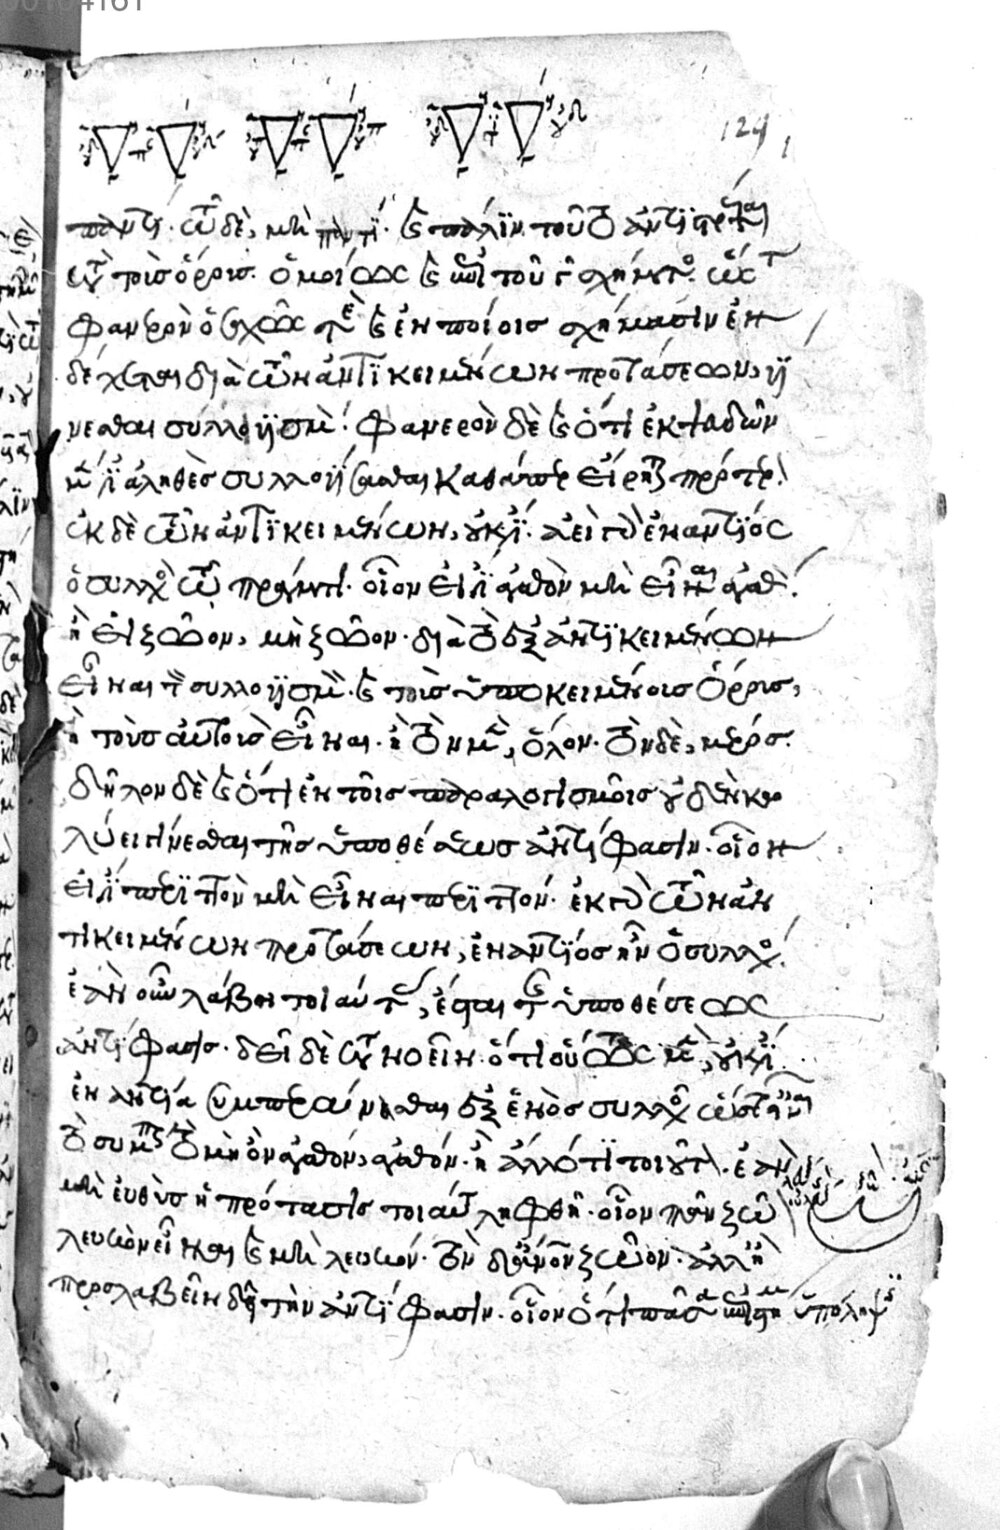 παντί· τῷ δὲ, μὴ παντί· καὶ πάλιν τοῦτο ἀντιστρέψαι
τοῖς ὅροις. ὁμοίως καὶ ἐπὶ τοῦ γ σχήματος. ὥστε
φανερὸν ὁσαχῶς τε καὶ ἐν ποίοις σχήμασιν ἐν
δέχεται διὰ τῶν ἀντικειμένων προτάσεων, γι
νεσθαι συλλογισμός. φανερὸν δὲ καὶ ὅτι ἐκ ψευδῶν
μέν ἐστι ἀληθὲς συλλογίσασθαι καθάπερ εἴρηται πρότερον.
ἐκ δὲ τῶν ἀντικειμένων, οὐκ ἔστι. ἀεὶ γὰρ ἐναντίος
ὁ συλλογισμὸς τῷ πράγματι. οἷον εἰ ἔστι ἀγαθὸν μὴ εἶναι ἀγαθόν.
ἢ εἰ ζῶον, μὴ ζῶον. διὰ τὸ ἐξ ἀντικειμένων
εἶναι τὸν συλλογισμόν. καὶ τοὺς ὑποκειμένους ὅρους,
ἢ τοὺς αὐτοὺς εἶναι. ἢ τὸν μὲν, ὅλον. τὸν δὲ, μέρος.
δῆλον δὲ καὶ ὅτι ἐν τοῖς παραλογισμοῖς οὐδὲν κω
λύει γίνεσθαι τῆς ὑποθέσεως ἀντίφασιν. οἷον
εἰ ἔστι περιττὸν μὴ εἶναι περιττόν. ἐκ γὰρ τῶν ἀν
τικειμένων προτάσεων, ἐναντίος ἦν ὁ συλλογισμός.
ἐὰν οὖν λάβῃ τοιαύτας, ἔσται τῆς ὑποθέσεως
ἀντίφασις. δεῖ δὲ κατανοεῖν. ὅτι οὕτως μὲν, οὐκ ἔστι
ἐναντία συμπεράνασθαι ἐξ ἑνὸς συλλογισμοῦ ὥστ' εἶναι
τὸ συμπέρασμα τὸ μὴ ὂν ἀγαθὸν, ἀγαθόν. ἢ ἄλλό τι τοιοῦτον. ἐὰν
μὴ εὐθὺς ἡ πρότασις τοιαύτη ληφθῇ. οἷον πᾶν ζῶον
λευκὸν εἶναι καὶ μὴ λευκόν. τὸν δ' ἄνθρωπον ζῶον. ἀλλ' ἢ
προσλαβεῖν δεῖ τὴν ἀντίφασιν. οἷον ὅτι πᾶσα ἐπιστήμη ὑπόληψις